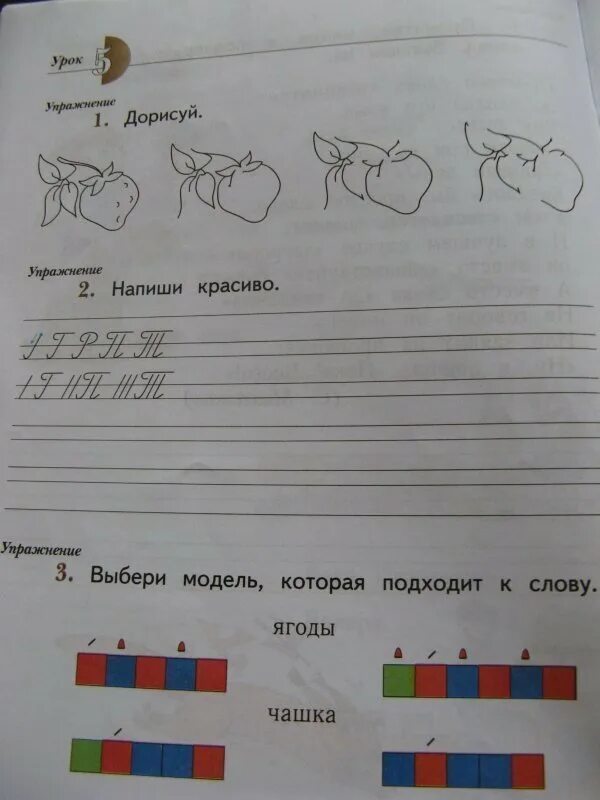 Урок 5
Упражнение
1. Дорисуй.
Упражнение
2. Напиши красиво.
Г Р П Т
Г П Т
Упражнение
3. Выбери модель, которая подходит к слову.
ягоды
чашка